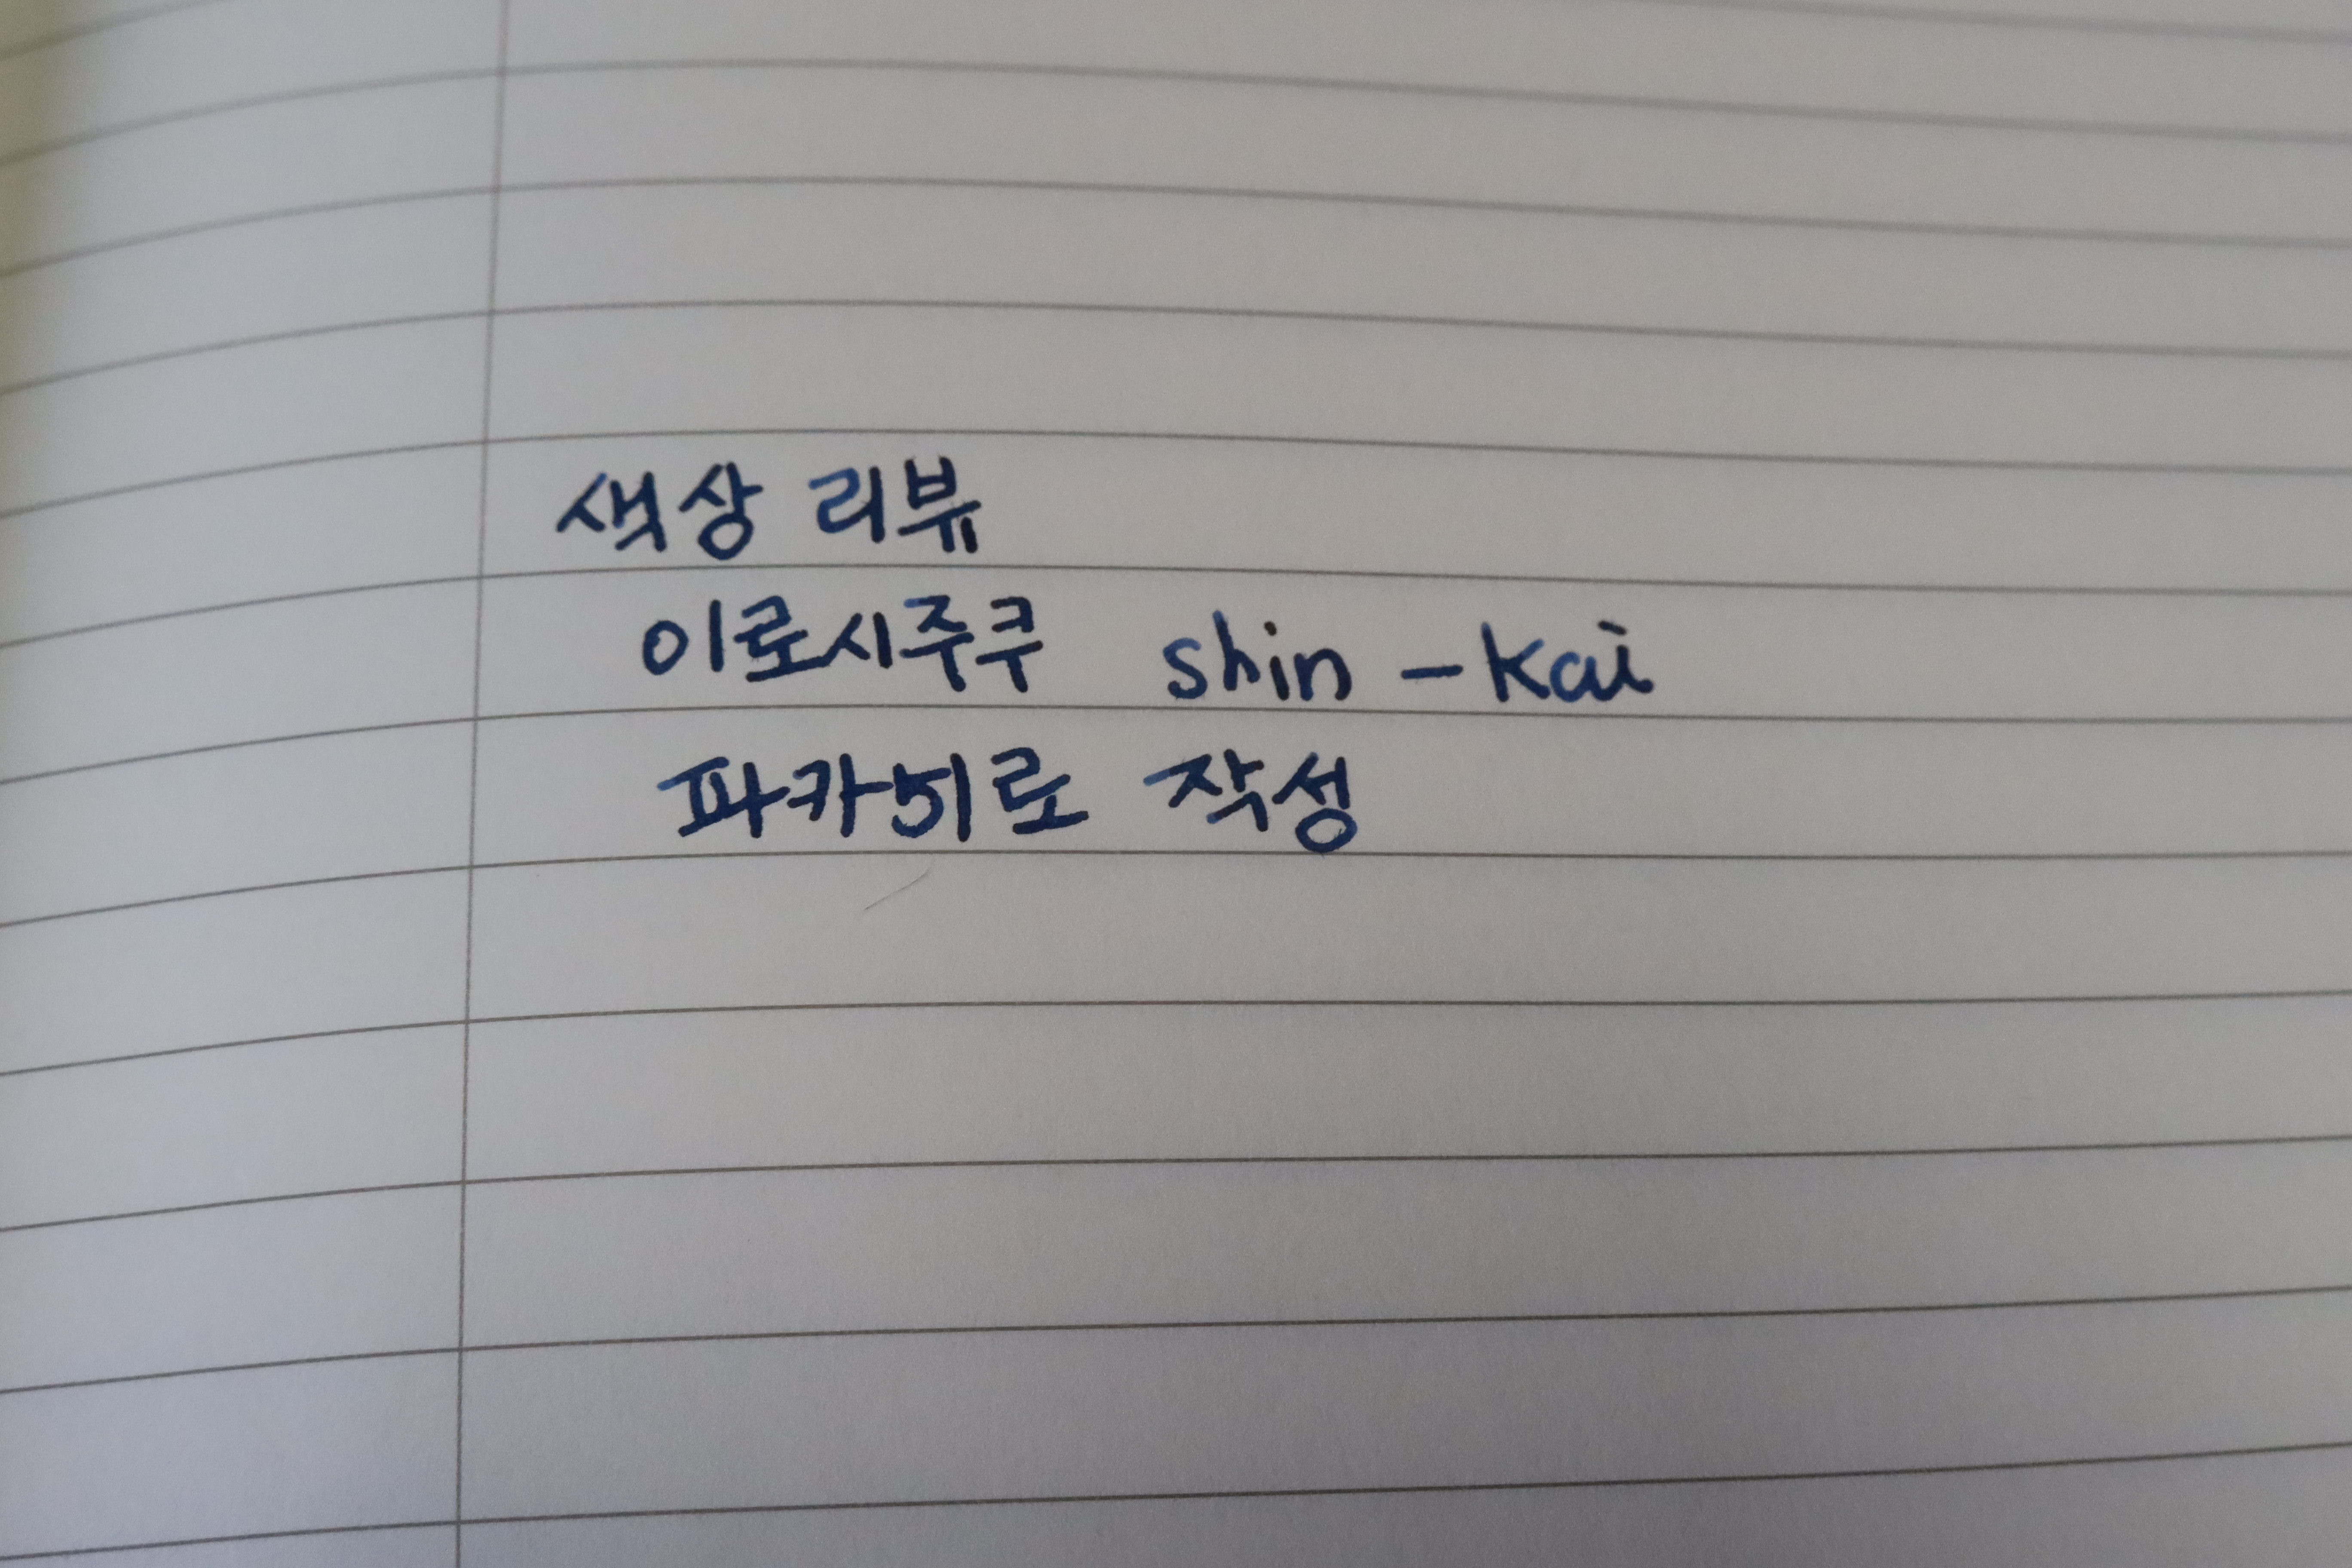 색상 리뷰
이로시주쿠 shin-kai
파카51로 작성